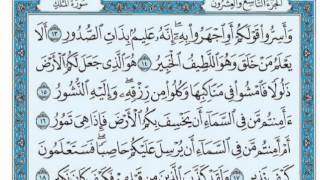 الجزء التاسع والعشرون سورة الملك
وَأَسِرُّوا۟ قَوْلَكُمْ أَوِ ٱجْهَرُوا۟ بِهِۦٓ ۖ إِنَّهُۥ عَلِيمٌۢ بِذَاتِ ٱلصُّدُورِ ١٣ أَلَا
يَعْلَمُ مَنْ خَلَقَ وَهُوَ ٱللَّطِيفُ ٱلْخَبِيرُ ١٤ هُوَ ٱلَّذِى جَعَلَ لَكُمُ ٱلْأَرْضَ
ذَلُولًا فَٱمْشُوا۟ فِى مَنَاكِبِهَا وَكُلُوا۟ مِن رِّزْقِهِۦ ۖ وَإِلَيْهِ ٱلنُّشُورُ ١٥
ءَأَمِنتُم مَّن فِى ٱلسَّمَآءِ أَن يَخْسِفَ بِكُمُ ٱلْأَرْضَ فَإِذَا هِىَ تَمُورُ ١٦
أَمْ أَمِنتُم مَّن فِى ٱلسَّمَآءِ أَن يُرْسِلَ عَلَيْكُمْ حَاصِبًا ۖ فَسَتَعْلَمُونَ
كَيْفَ نَذِيرِ ١٧ وَلَقَدْ كَذَّبَ ٱلَّذِينَ مِن قَبْلِهِمْ فَكَيْفَ كَانَ نَكِيرِ